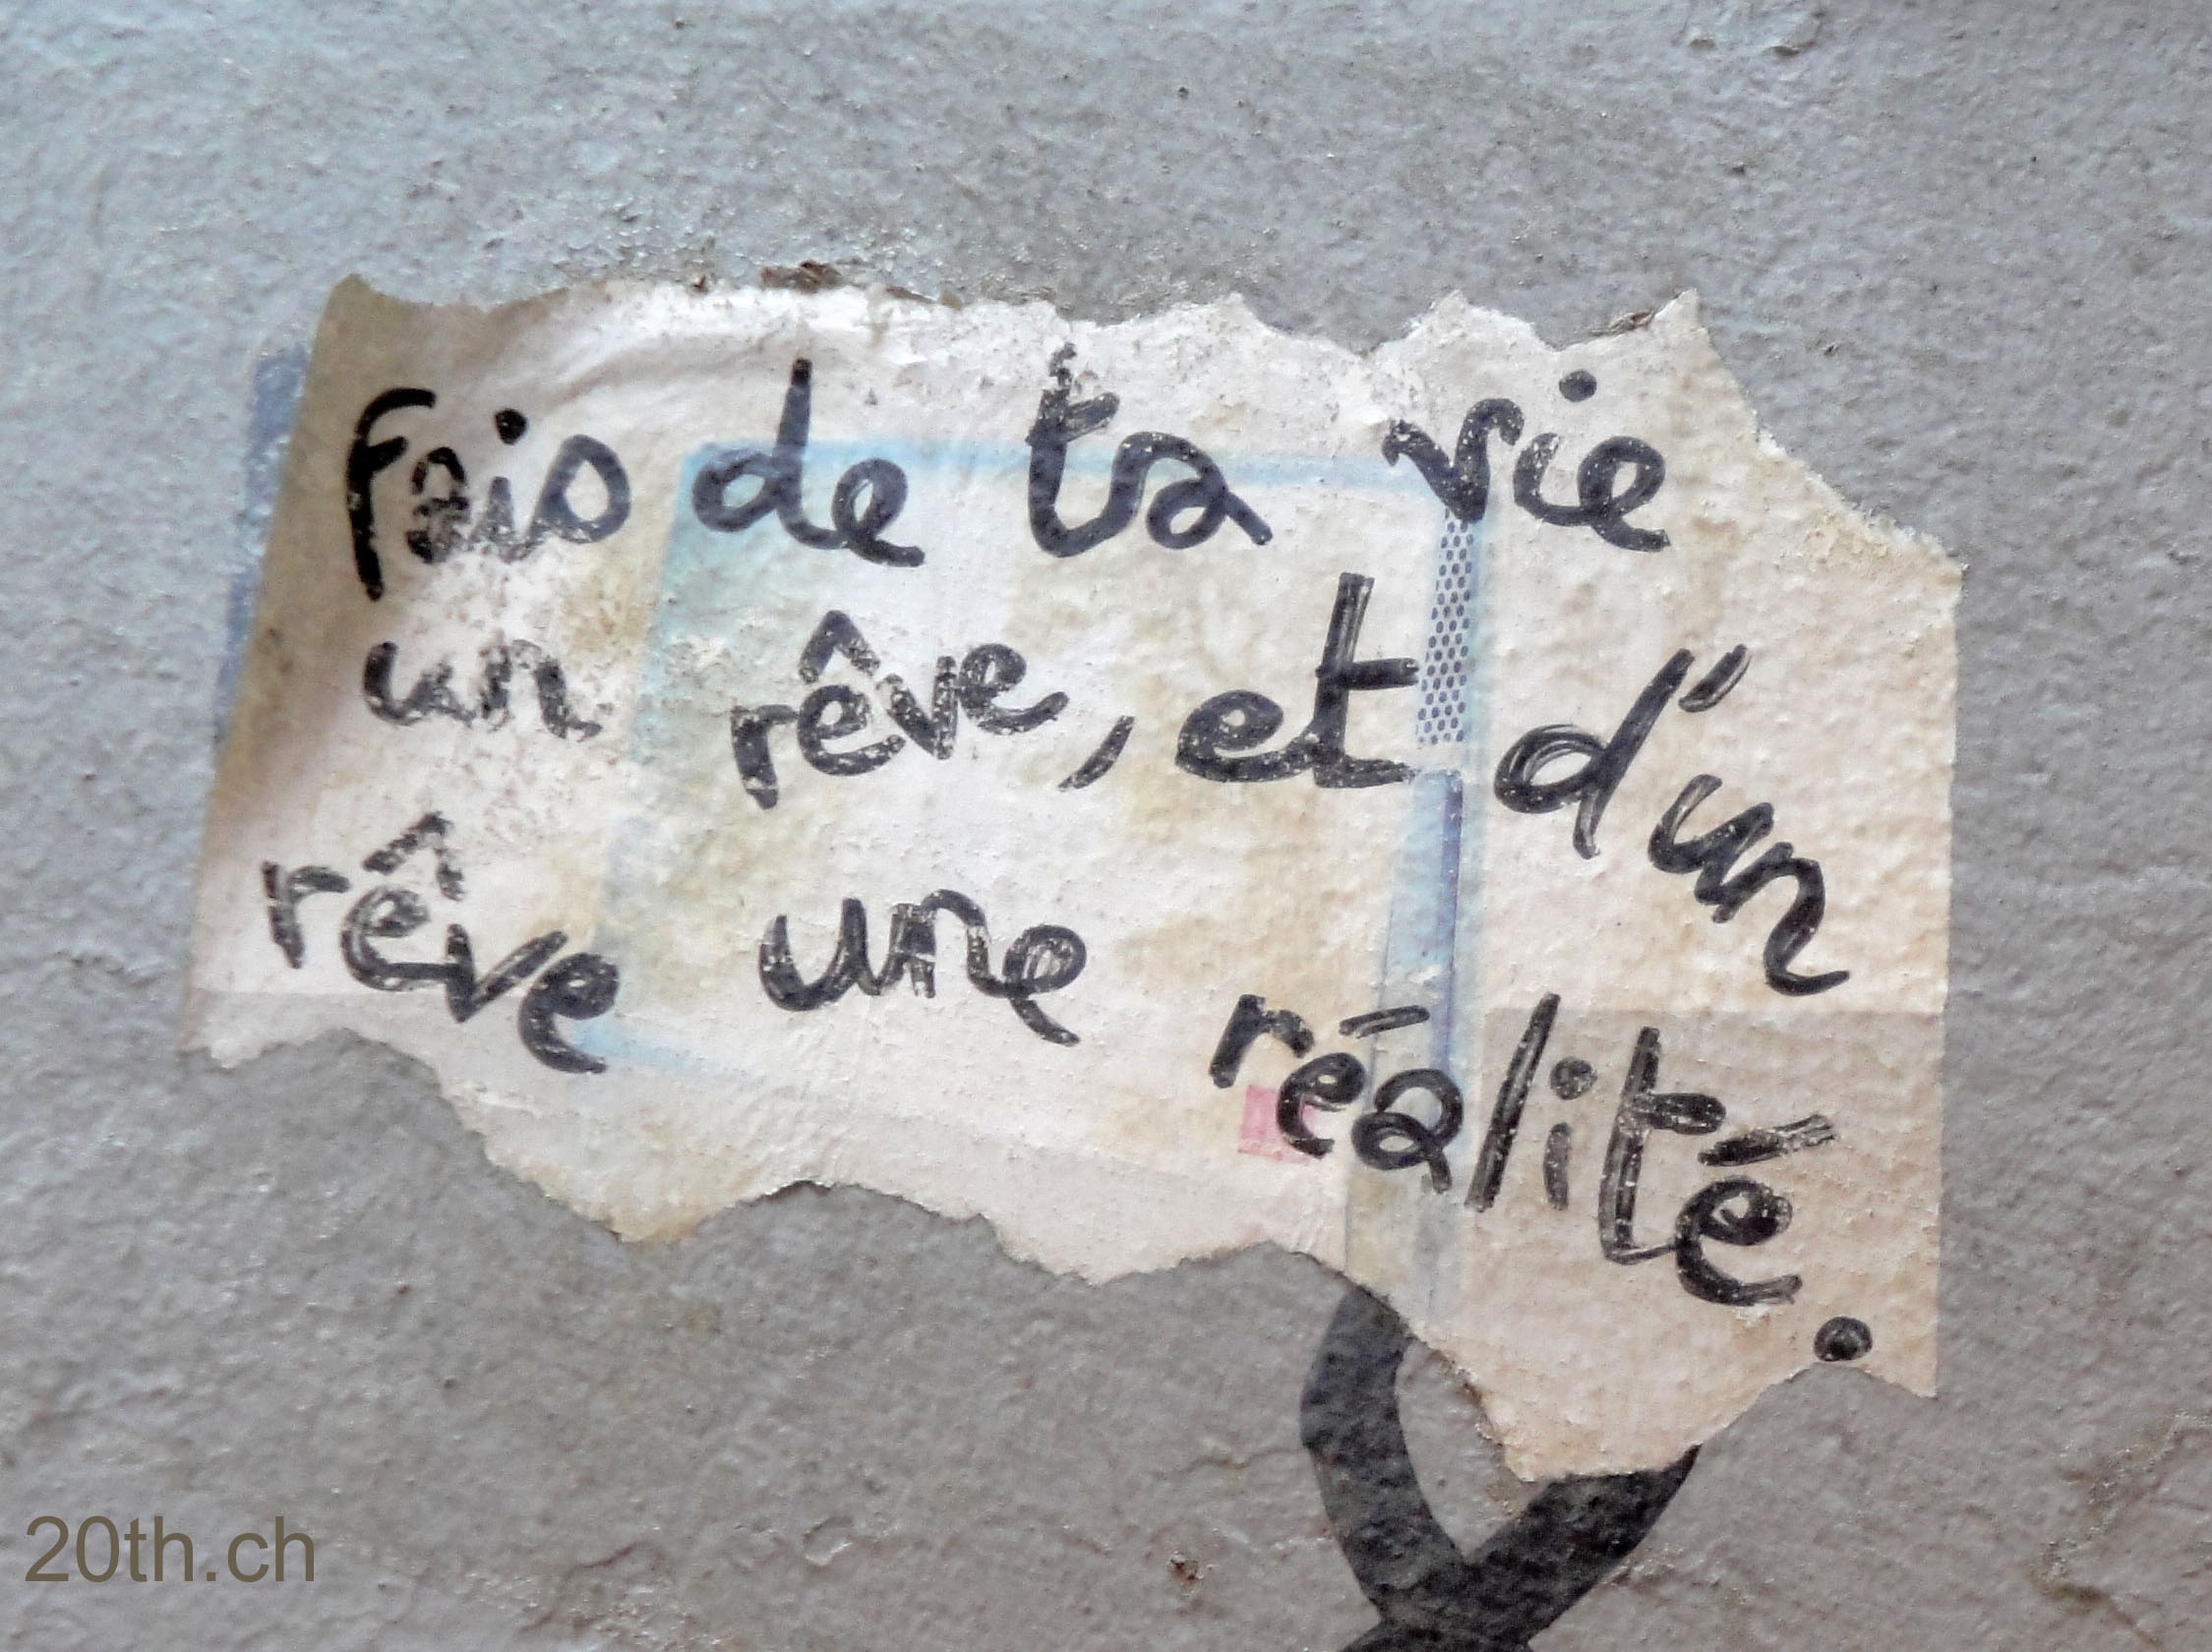 Fais de ta vie
un rêve, et d'un
rêve une réalité.
20th.ch